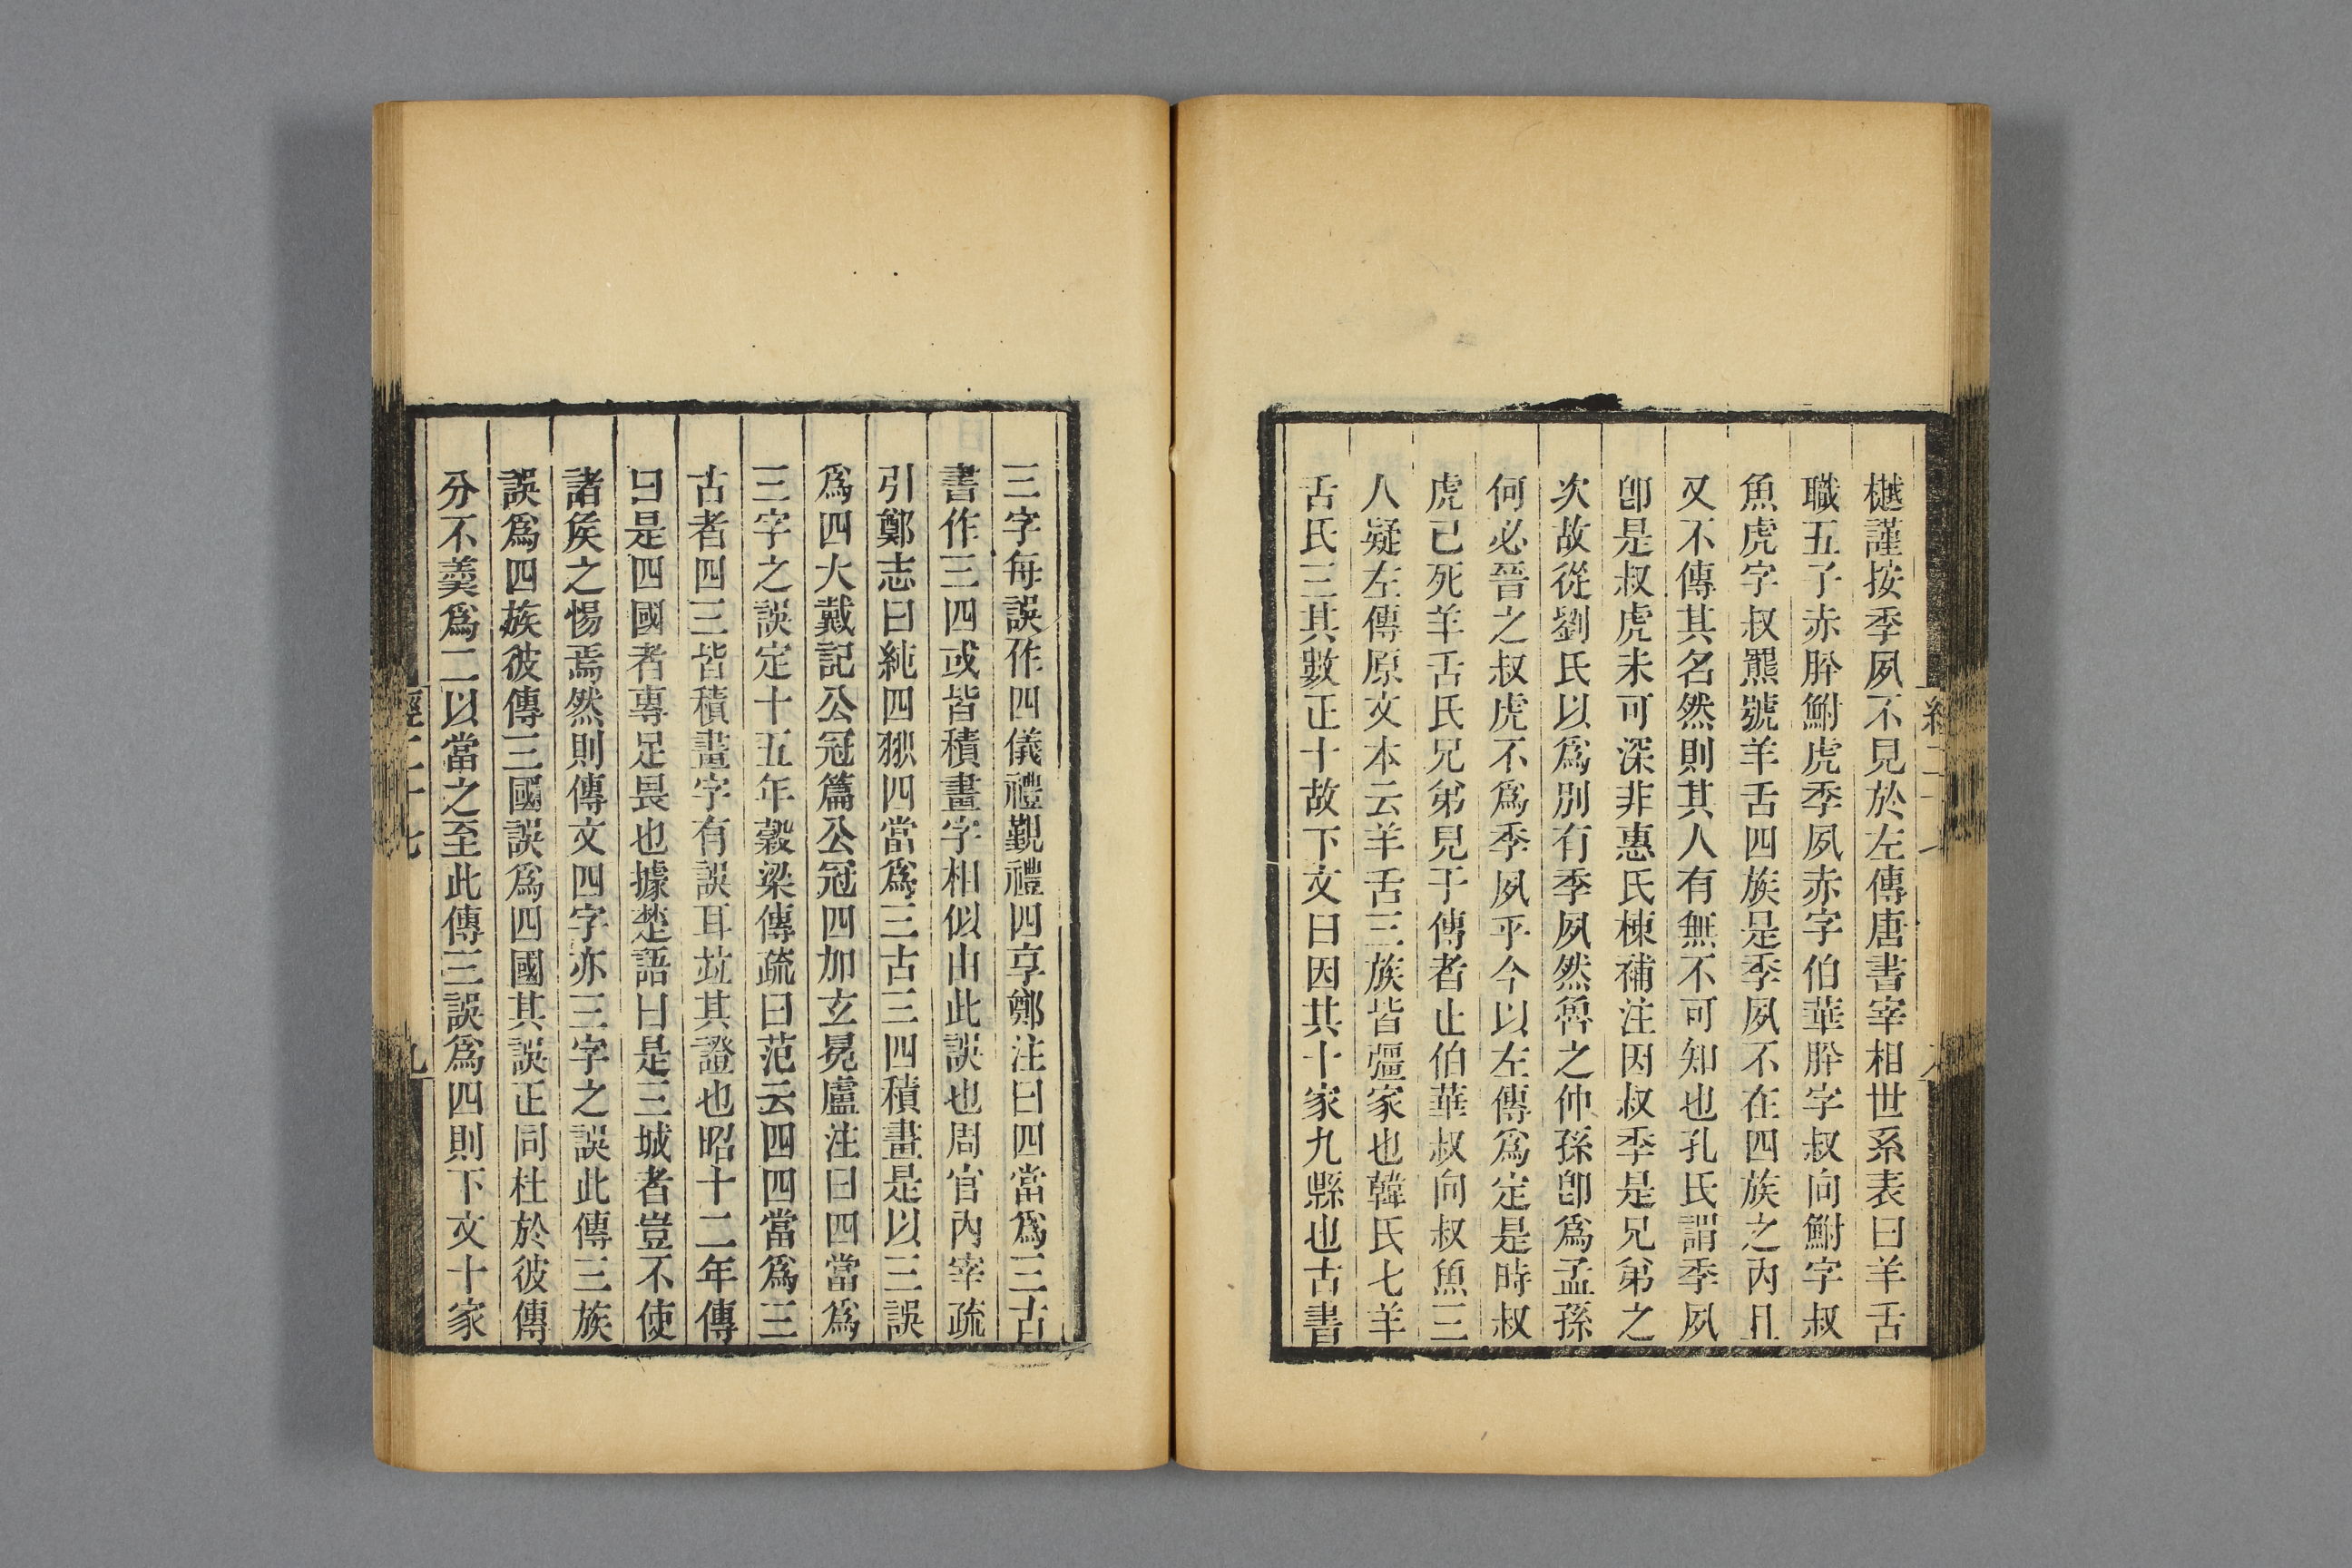 樾謹按季夙不見於左傳唐書宰相世系表曰羊舌
職五子赤肸鮒虎季夙赤字伯華肸字叔向鮒字叔
魚虎字叔羆號羊舌四族是季夙不在四族之內且
又不傳其名然則其人有無不可知也孔氏謂季夙
卽是叔虎未可深非惠氏棟補注因叔季是兄弟之
次故從劉氏以爲別有季夙然魯之仲孫卽爲孟孫
何必晉之叔虎不爲季夙乎今以左傳爲定是時叔
虎已死羊舌氏兄弟見于傳者止伯華叔向叔魚三
人疑左傳原文本云羊舌三族皆彊家也韓氏七羊
舌氏三其數正十故下文曰因其十家九縣也古書
三字每誤作四儀禮覲禮四享鄭注曰四當爲三古
書作三四或皆積畫字相似由此誤也周官內宰疏
引鄭志曰純四𣃁四當爲三古三四積畫是以三誤
爲四大戴記公冠篇公冠四加玄冕盧注曰四當爲
三字之誤定十五年穀梁傳疏曰范云四四當爲三
古者四三皆積畫字有誤耳竝其證也昭十二年傳
曰是四國者專足畏也據楚語曰是三城者豈不使
諸矦之惕焉然則傳文四字亦三字之誤此傳三族
誤爲四族彼傳三國誤爲四國其誤正同杜於彼傳
分不羹爲二以當之至此傳三誤爲四則下文十家
經二十七
九